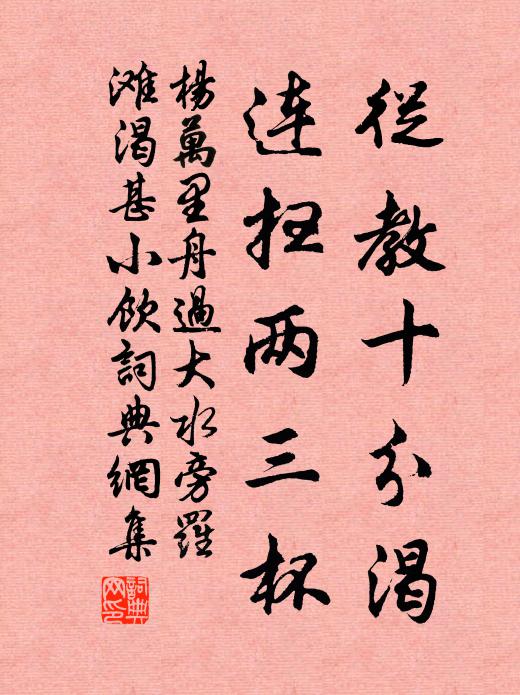 從教十分渴
連扫两三杯
楊萬里舟過大水旁羅
滩渴甚小飲詞典網集
詞典网印